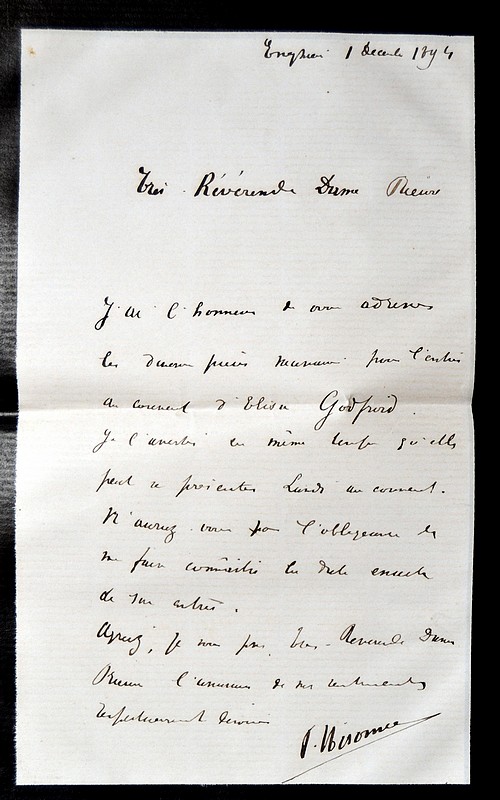 Enghien 1 Décembre 1894
Très Révérende Dame Prieure
J'ai l'honneur de vous adresser
les diverses pièces pour l'entrée
au couvent d'Elisa Godfroid.
Je l'avertis en même temps qu'elle
peut se présenter Lundi au couvent.
N'auriez vous pas l'obligeance de
me faire connaître la date exacte
de son entrée.
Agréez, je vous prie, Très Révérende Dame
Prieure l'assurance de mes sentiments
respectueusement dévoués